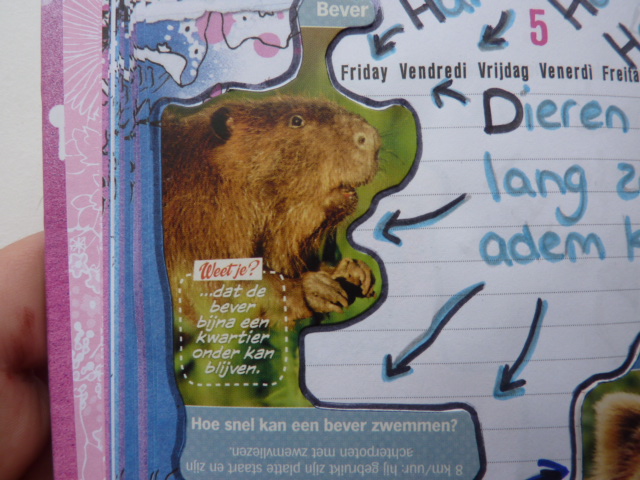 Bever
5
Friday Vendredi Vrijdag Venerdì Freita
Dieren
lang
adem
Weet je?
...dat de
bever
bijna een
kwartier
onder kan
blijven.
Hoe snel kan een bever zwemmen?
8 km/uur: hij gebruikt zijn platte staart en zijn
achterpoten met zwemvliezen.